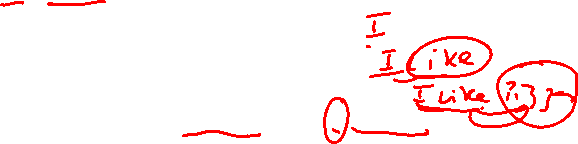 I
I like
I like